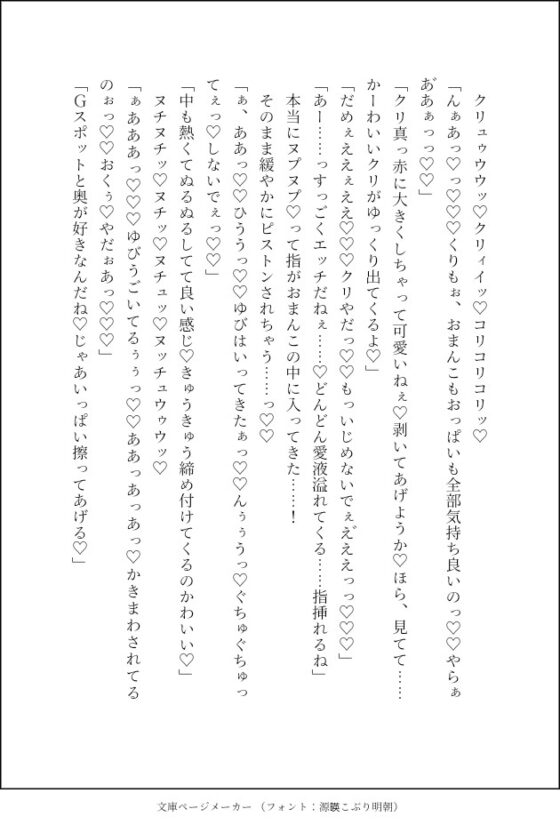 クリュゥウウッ♡クリィイッ♡コリコリコリッ♡
「んぁあっ♡っ♡♡♡くりもぉ、おまんこもおっぱいも全部気持ち良いのっ♡♡やらぁ
あ゙あぁっっ♡♡」
「クリ真っ赤に大きくしちゃって可愛いねぇ♡剥いてあげようか♡ほら、見てて……
かーわいいクリがゆっくり出てくるよ♡」
「だめぇええぇええ♡♡♡クリやだっ♡♡もっいじめないでぇ゙えええっっ♡♡♡」
「あー……っすっごくエッチだねぇ……♡どんどん愛液溢れてくる……指挿れるね」
本当にヌプヌプ♡って指がおまんこの中に入ってきた……！
そのまま緩やかにピストンされちゃう……っ♡♡
「ぁ、ああっ♡♡ひううっ♡♡ゆびはいってきたぁっ♡♡んぅぅうっ♡ぐちゅぐちゅっ
てぇっ♡しないでぇっ♡♡」
「中も熱くてぬるぬるしてて良い感じ♡きゅうきゅう締め付けてくるのかわいい♡」
ヌチヌチッ♡ヌチッ♡ヌチュッ♡ヌッチュウゥウッ♡
「ぁあああっ♡♡♡ゆびうごいてるぅぅっ♡♡ああっあっあっ♡かきまわされてる
のぉっ♡♡おくぅ♡やだぉあっ♡♡♡」
「Gスポットと奥が好きなんだね♡じゃあいっぱい擦ってあげる♡」
文庫ページメーカー（フォント：源暎こぶり明朝）